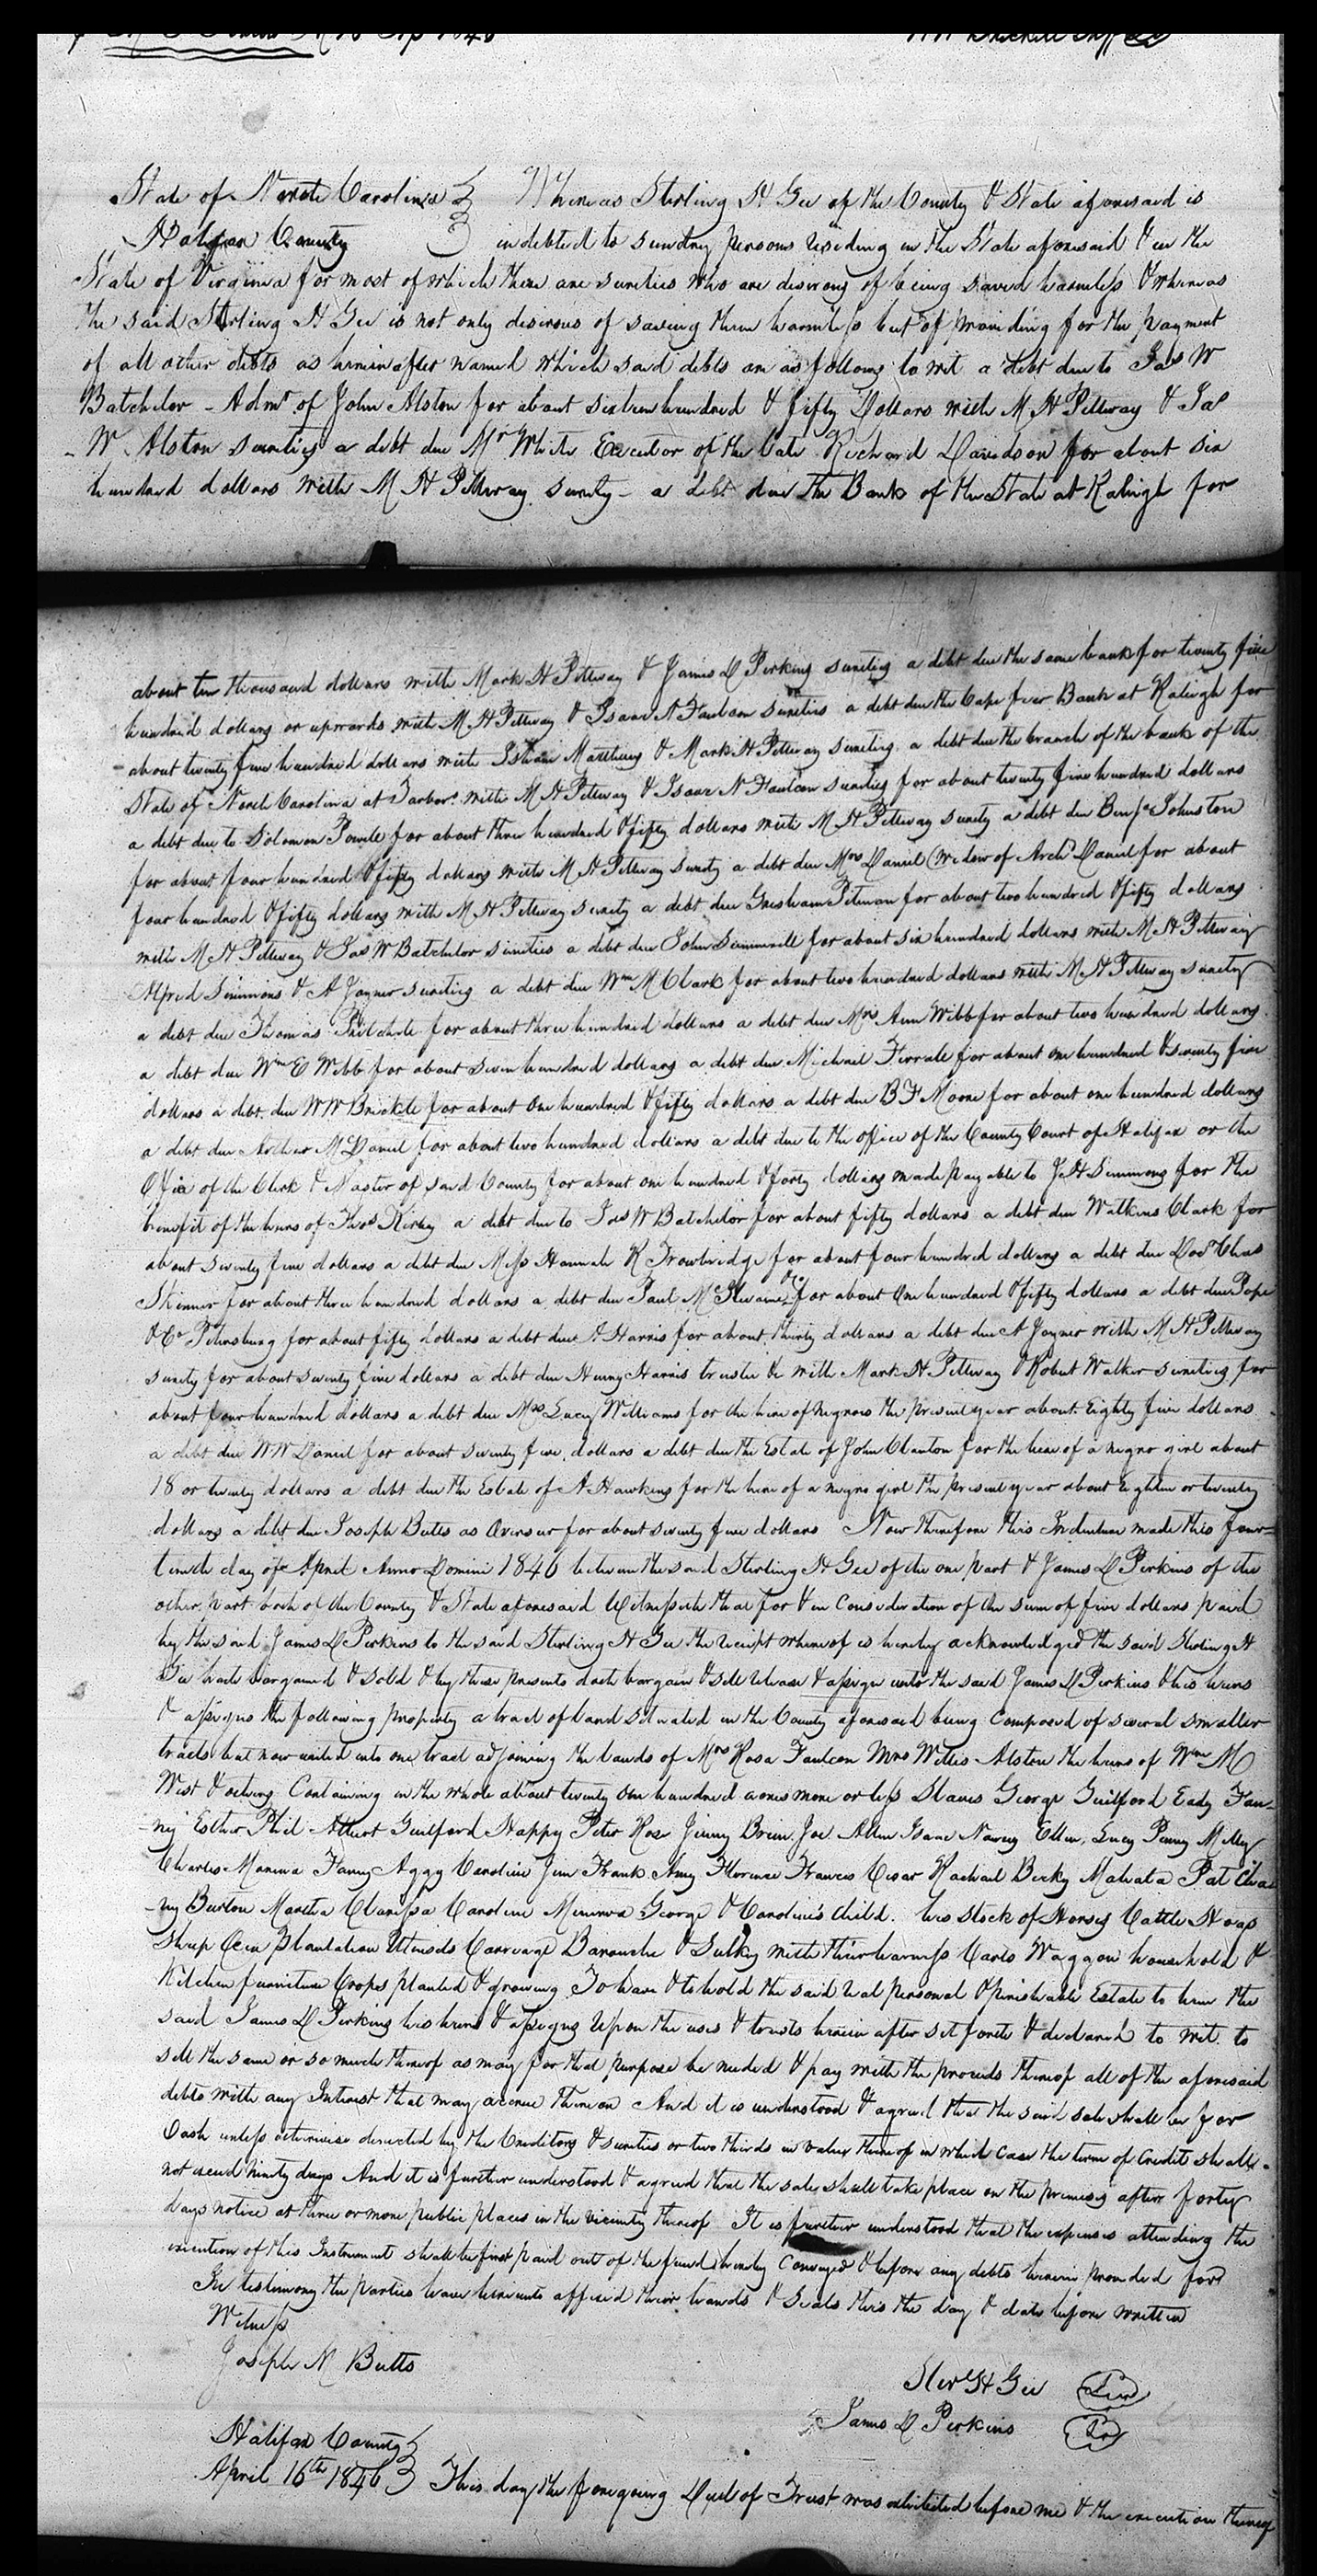 Sep 1846
State of North Carolina } Whereas Sterling H Gee of the County & State aforesaid is
Halifax County } indebted to sundry persons residing in the State aforesaid & in the
State of Virginia for most of which there are sureties who are desirous of being saved harmless & whereas
the said Sterling H Gee is not only desirous of saving them harmless but of providing for the payment
of all other debts as hereinafter named which said debts are as follows to wit a debt due to Jas W
Batchelor - Admr of John Alston for about sixteen hundred & fifty Dollars with M H Pettway & Jas
W Alston sureties a debt due Mr White Executor of the late Richard Davidson for about six
hundred dollars with M H Pettway surety - a debt due the Bank of the State at Raleigh for
about ten thousand dollars with Mark H Pettway & James D Perkins sureties a debt due the same bank for twenty five
hundred dollars or upwards with M H Pettway & Isaac N Faulcon sureties a debt due the Cape Fear Bank at Raleigh for
about twenty five hundred dollars with Isham Matthews & Mark H Pettway sureties a debt due the branch of the bank of the
State of North Carolina at Tarboro with M H Pettway & Isaac N Faulcon sureties for about twenty five hundred dollars
a debt due to Solomon Powell for about three hundred & fifty dollars with M H Pettway surety a debt due Benja Johnston
for about four hundred & fifty dollars with M H Pettway surety a debt due Mrs Daniel (Widow of Archd Daniel for about
four hundred & fifty dollars with M H Pettway surety a debt due Gresham Pitman for about two hundred & fifty dollars
with M H Pettway & Jas W Batchelor sureties a debt due John Simmerell for about six hundred dollars with M H Pettway
Alfred Simmons & A Joyner sureties a debt due Wm M Clark for about two hundred dollars with M H Pettway surety
a debt due Thomas Pritchett for about three hundred dollars a debt due Mrs Ann Webb for about two hundred dollars
a debt due Wm E Webb for about seven hundred dollars a debt due Michael Ferrall for about one hundred & seventy five
dollars a debt due W W Brickle for about One hundred & fifty dollars a debt due B F Moore for about one hundred dollars
a debt due Arthur M Daniel for about two hundred dollars a debt due to the office of the County Court of Halifax or the
Office of the Clerk & Master of said County for about one hundred & forty dollars made payable to J H Simmons for the
benefit of the heirs of Thos Kirby a debt due to Jas W Batchelor for about fifty dollars a debt due Watkins Clark for
about seventy five dollars a debt due Miss Hannah K Trowbridge for about four hundred dollars a debt due Docr Chas
Skinner for about three hundred dollars a debt due Paul McIlwaine & Co for about One hundred & fifty dollars a debt due Pope
& Co Petersburg for about fifty dollars a debt due A Harris for about thirty dollars a debt due A Joyner with M H Pettway
surety for about seventy five dollars a debt due Henry Harris trustee &c with Mark H Pettway & Robert Walker sureties for
about four hundred dollars a debt due Mrs Lucy Williams for the hire of negroes the present year about Eighty five dollars
a debt due W W Daniel for about seventy five dollars a debt due the Estate of John Clanton for the hire of a negro girl about
18 or twenty dollars a debt due the Estate of A Hawkins for the hire of a negro girl the present year about Eighteen or twenty
dollars a debt due Joseph Butts as Overseer for about seventy five dollars Now therefore this Indenture made this four=
teenth day of April Anno Domini 1846 between the said Sterling H Gee of the one part & James D Perkins of the
other part both of the County & State aforesaid Witnesseth that for & in Consideration of the sum of five dollars paid
by the said James D Perkins to the said Sterling H Gee the receipt whereof is hereby acknowledged the said Sterling H
Gee hath bargained & sold & by these presents doth bargain & sell release & assign unto the said James D Perkins & his heirs
& assigns the following property a tract of land situated in the County aforesaid being Composed of several smaller
tracts but now united into one tract adjoining the lands of Mrs Rosa Faulcon Mrs Willis Alston the heirs of Wm M
West & others Containing in the whole about twenty one hundred acres more or less Slaves George Guilford Eady Fan-
ny Esther Phil Albert Guilford Happy Peter Rose Jinny Brim Joe Allen Isaac Nancy Ellen, Lucy Penny Milly
Charles Maniva Fanny Aggy Caroline Jim Frank Amy Florence Frances Cesar Rachael Becky Mahala Pat Chas-
ny Burton Martha Clarissa Caroline Minerva George & Caroline's child. his stock of Horses Cattle Hogs
Sheep Oxen Plantation Utensils Carriage Barouche & Sulky with their harness Carts Waggon household &
Kitchen furniture Crops planted & growing To have & to hold the said real personal & perishable Estate to him the
said James D Perkins his heirs & assigns Upon the uses & trusts herein after set forth & declared to wit to
sell the same or so much thereof as may for that purpose be needed & pay with the proceeds thereof all of the aforesaid
debts with any Interest that may accrue thereon And it is understood & agreed that the said sale shall be for
Cash unless otherwise directed by the Creditors & sureties or two thirds in value thereof in which case the term of Credit shall
not exceed Ninety days And it is further understood & agreed that the sale shall take place on the premises after forty
days notice at three or more public places in the vicinity thereof It is further understood that the expenses attending the
execution of this Instrument shall be first paid out of the fund hereby Conveyed & before any debts herein provided for
In testimony the parties have hereunto affixed their hands & Seals this the day & date before written
Witness
Joseph N Butts
Ster H Gee (Seal)
James D Perkins (Seal)
Halifax County }
April 16th 1846 } This day the foregoing Deed of Trust was exhibited before me & the execution thereof